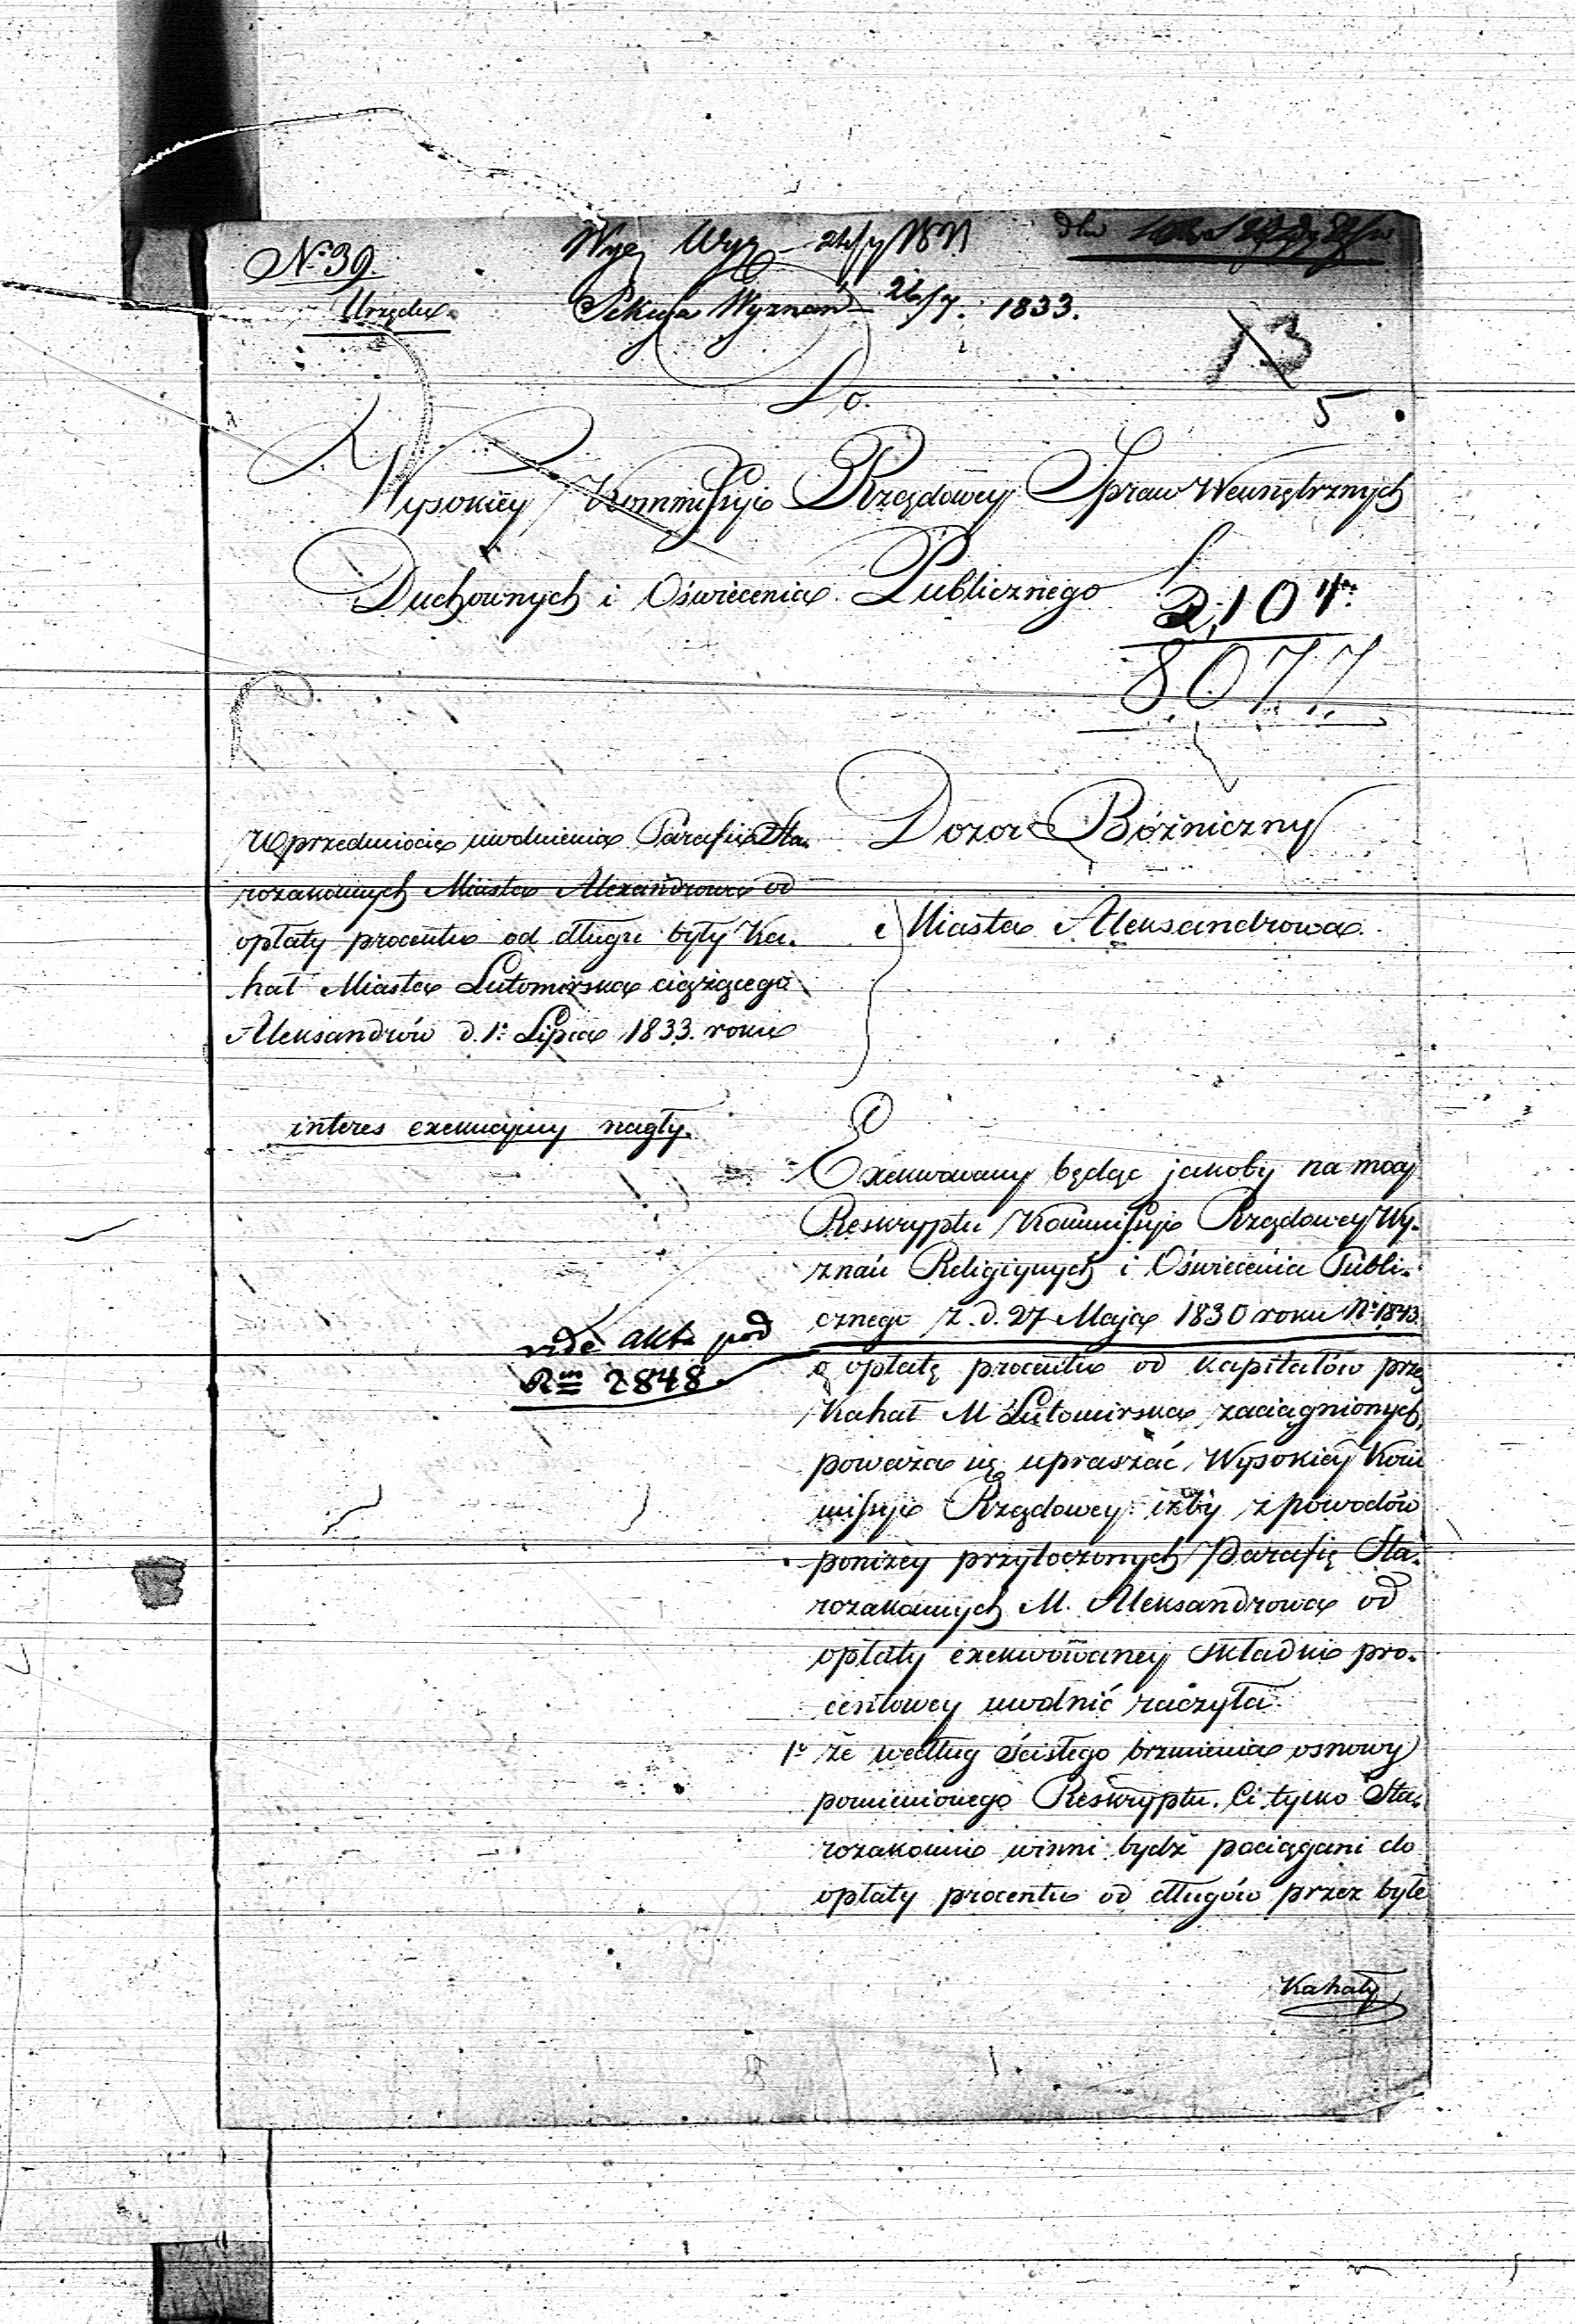 No 39.
Urzędu.
Wyz 24/7 1833
Sekcya Wyznań 26/7. 1833.
13
5
Do.
Wysokiey Kommissyi Rządowey Spraw Wewnętrznych
Duchownych i Oświecenia Publicznego
8077
W przedmiocie uwolnienia Parafii Sta-
rozakonnych Miasta Alexandrowa od
opłaty procentu od długu były Ka-
hał Miasta Lutomirska ciążącego
Aleksandrów d. 1o Lipca 1833. roku
interes exekucyiny nagły.
Dozór Bóźniczny
Miasta Aleksandrowa.
Exekwowany będąc jakoby na mocy
Reskryptu Kommissyi Rządowey Wy-
znań Religiynych i Oświecenia Publi-
cznego z d. 27 Maja 1830 roku No 1843.
vide akta pod
Nm 2848.
o opłatę procentu od kapitałów przez
Kahał M Lutomirska zaciągnionych,
poważa się upraszać, Wysokiey Kom
missyi Rządowey: iżby z powodów
poniżey przytoczonych Parafię Sta-
rozakonnych M. Aleksandrowa od
opłaty exekwowaney składki pro-
centowey uwolnić raczyła.
1o że według ścisłego brzmienia osnowy
pomienionego Reskryptu. Ci tylko Sta-
rozakonni winni bydź pociągani do
opłaty procentu od długów przez byłe
Kahały